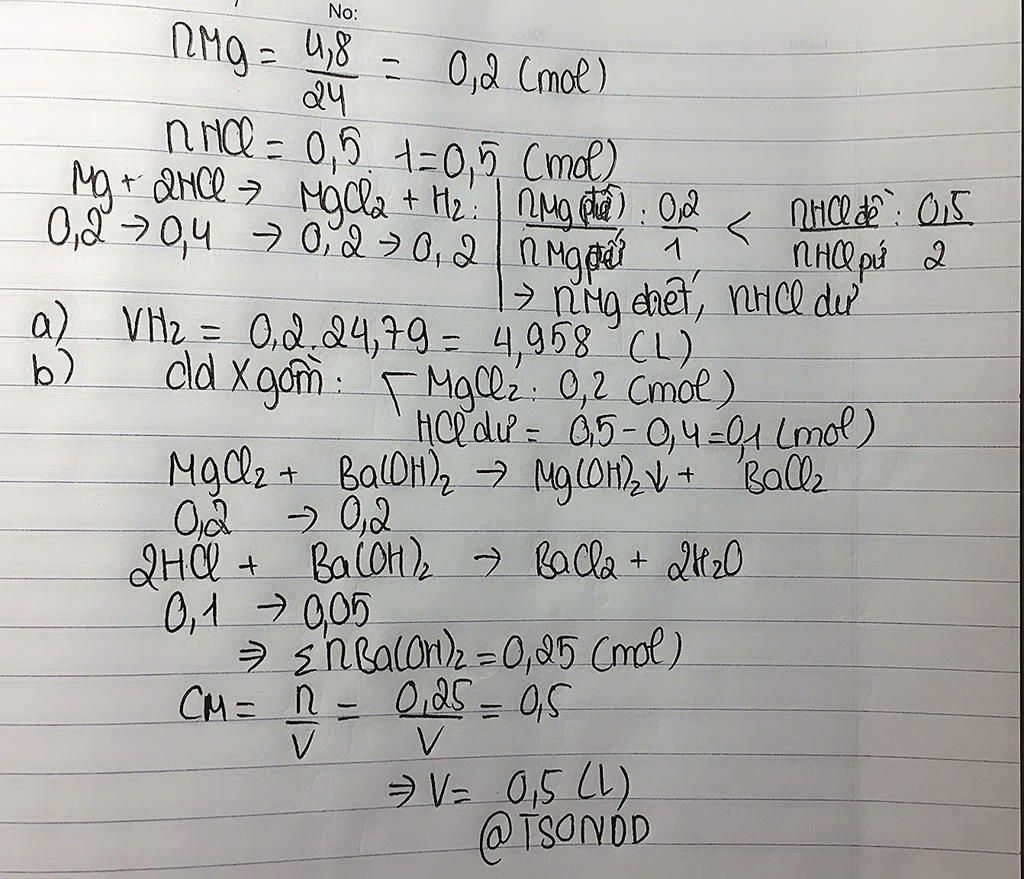 No:
nMg = 4,8/24 = 0,2 (mol)
nHCl = 0,5 . 1 = 0,5 (mol)
Mg + 2HCl → MgCl₂ + H₂ :
0,2 → 0,4 → 0,2 → 0,2
nMg / nMg : 0,2/1 < nHCl đề / nHCl pứ : 0,5/2
→ nMg hết, nHCl dư
a) VH₂ = 0,2.24,79 = 4,958 (L)
b) dd X gồm : MgCl₂ : 0,2 (mol)
HCl dư = 0,5 - 0,4 = 0,1 (mol)
MgCl₂ + Ba(OH)₂ → Mg(OH)₂↓ + BaCl₂
0,2 → 0,2
2HCl + Ba(OH)₂ → BaCl₂ + 2H₂O
0,1 → 0,05
⇒ Σ nBa(OH)₂ = 0,25 (mol)
CM = n/V = 0,25/V = 0,5
⇒ V = 0,5 (L)
@TSONDD